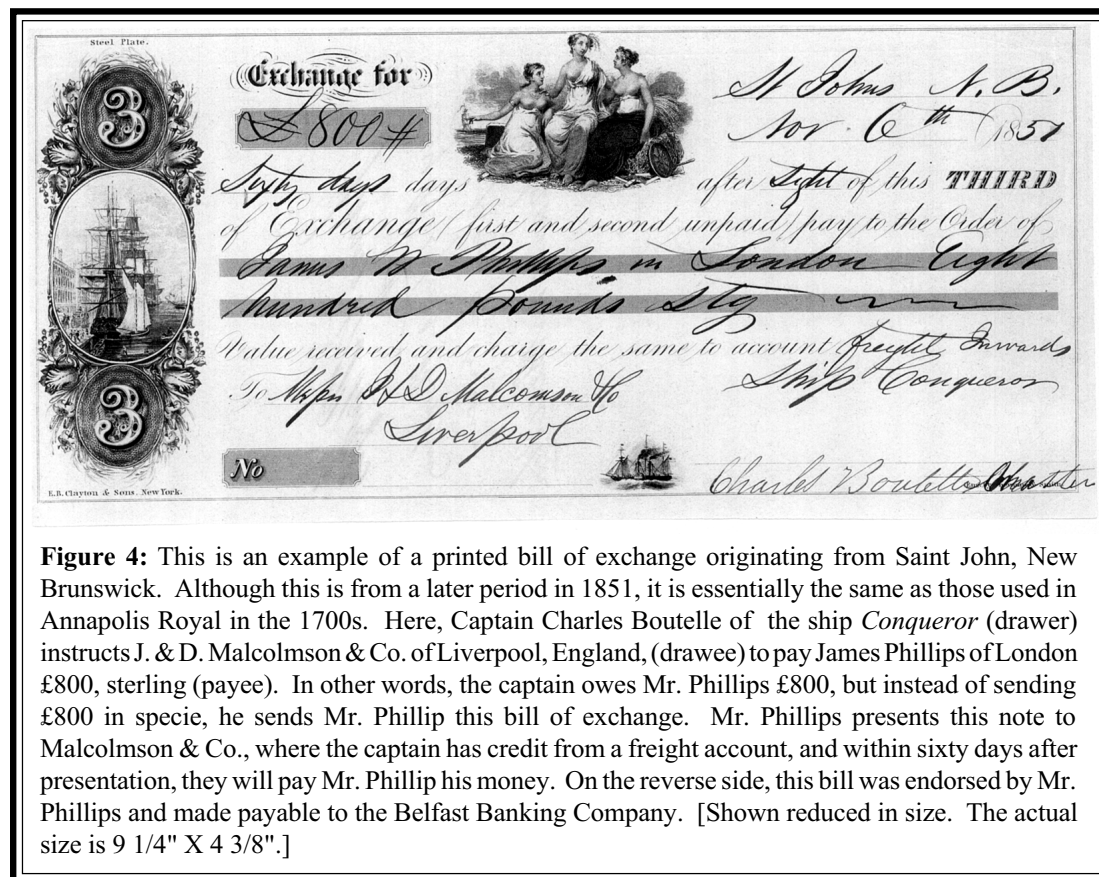 Steel Plate.
3
Exchange for
£800 #
St Johns N. B.
Nov. 6th 1851
Sixty days days after Sight of this THIRD
of Exchange (first and second unpaid) pay to the Order of
James W Phillips in London Eight
hundred pounds Stg
Value received and charge the same to account freight Inwards
To Messrs J & D Malcomson & Co Ship Conqueror
Liverpool
3
No
E.B. Clayton & Sons. New York.
Charles Boutelle Master
Figure 4: This is an example of a printed bill of exchange originating from Saint John, New
Brunswick. Although this is from a later period in 1851, it is essentially the same as those used in
Annapolis Royal in the 1700s. Here, Captain Charles Boutelle of the ship Conqueror (drawer)
instructs J. & D. Malcolmson & Co. of Liverpool, England, (drawee) to pay James Phillips of London
£800, sterling (payee). In other words, the captain owes Mr. Phillips £800, but instead of sending
£800 in specie, he sends Mr. Phillip this bill of exchange. Mr. Phillips presents this note to
Malcolmson & Co., where the captain has credit from a freight account, and within sixty days after
presentation, they will pay Mr. Phillip his money. On the reverse side, this bill was endorsed by Mr.
Phillips and made payable to the Belfast Banking Company. [Shown reduced in size. The actual
size is 9 1/4" X 4 3/8".]